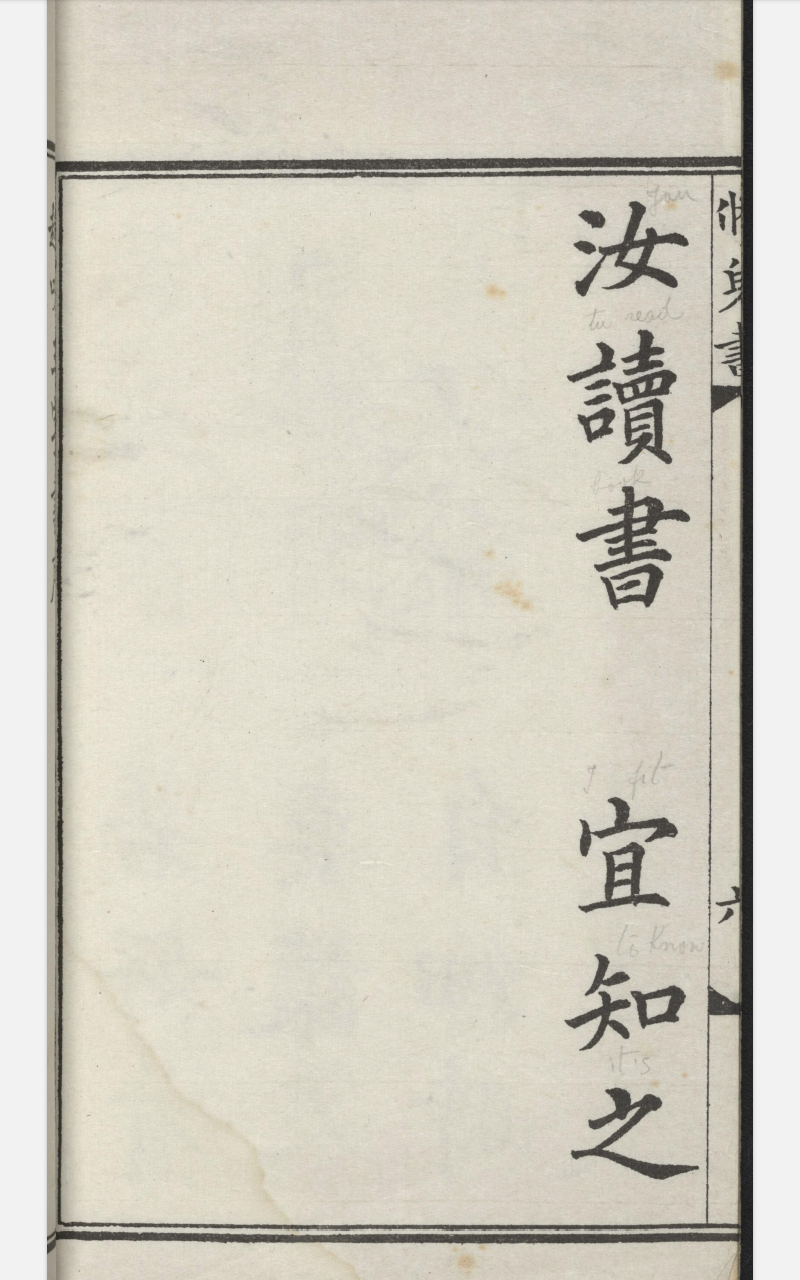 汝讀書 宜知之
you
to read
book
I fit
to know
it is
書
六